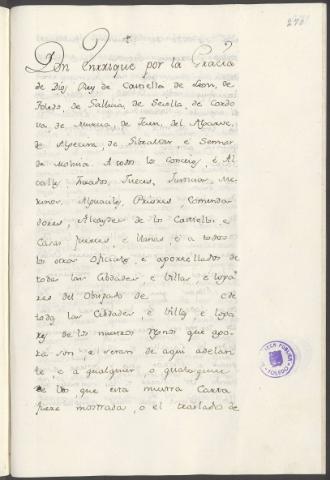 270
Don Enrrique por la Gracia
de Dios Rey de Castella de Leon, de
Toledo, de Gallicia, de Sevilla, de Cordo
va, de Murcia, de Jaen, del Algarve,
de Algecira, de Gibraltar, e Sennor
de Molina A todos los concejos, e Al
calles Jurados, Jueces, Justicias, Me
rinos, Alguaciles, Priores, Comenda
dores, Alcaydes de los Castellos e
Casas fuertes, e llanas, e a todos
los otros oficiales, e aportellados de
todas las Cibdades, e Villas e logа
res del Obispado de e de
todas las Cibdades, e Villas e loga
res de los nuestros Regnos que ago
ra son e seran de aqui adelan
te, e a qualquier o qualesquier
de los que esta nuestra Carta
fuere mostrada, o el traslado de
TOLEDO